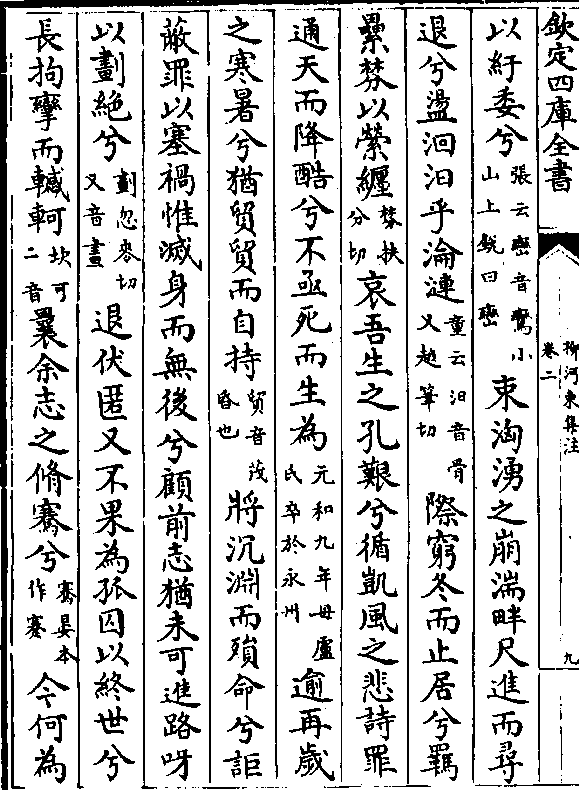 欽定四庫全書
柳河東集注
卷二
九
以紆委兮張云巒音鸞小山上銳曰巒束洶湧之崩湍畔尺進而尋
退兮盪洄汩乎淪漣童云汩音骨又越筆切際窮冬而止居兮羈
纍棼以縈纏棼扶分切哀吾生之孔艱兮循凱風之悲詩罪
通天而降酷兮不亟死而生為元和九年母盧氏卒於永州逾再歲
之寒暑兮猶貿貿而自持貿音茂昏也將沉淵而殞命兮詎
蔽罪以塞禍惟滅身而無後兮顧前志猶未可進路呀
以劃絕兮劃忽麥切又音畫退伏匿又不果為孤囚以終世兮
長拘攣而轗軻坎可二音曩余志之脩蹇兮騫晏本作蹇今何為